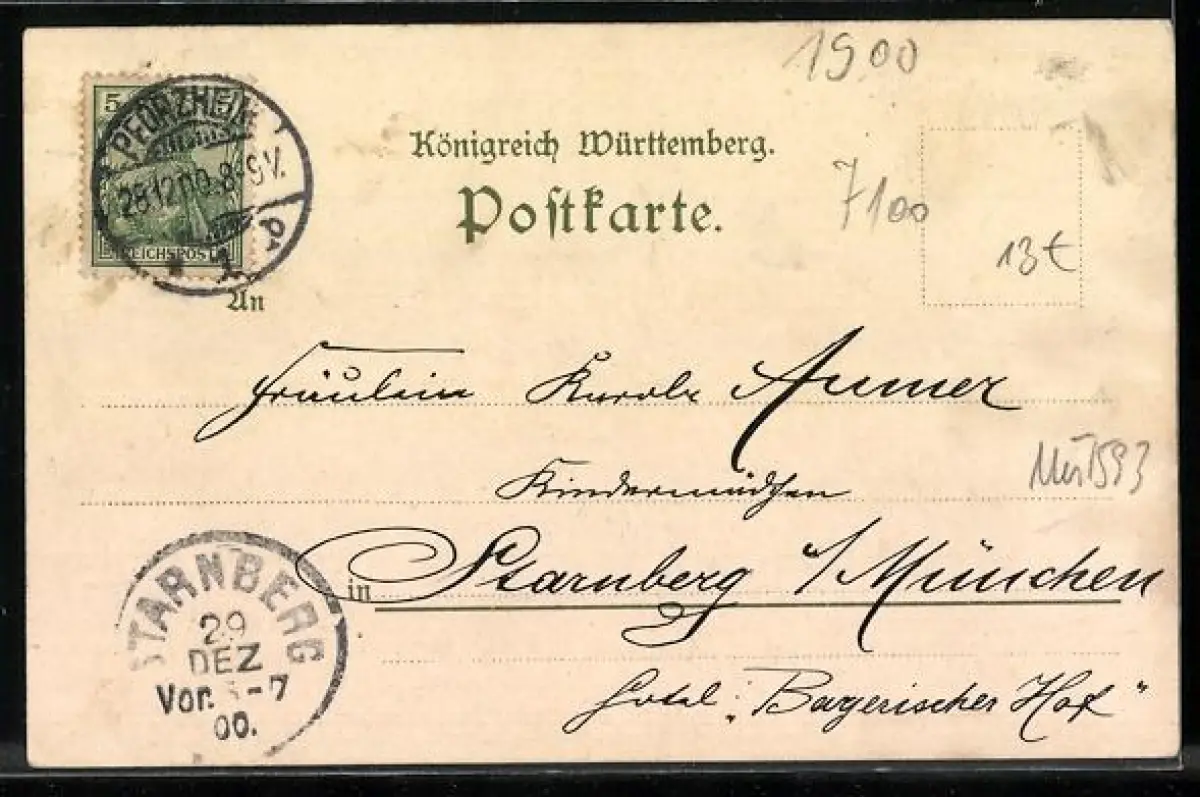 1900
Königreich Württemberg.
Postkarte.
7100
13€
5
REICHSPOST
PFORZHEIM
28.12.00. 8-9V.
1
An
Fräulein Karola Aumer
Kindermädchen
in Starnberg a/München
Hotel: „Bayerischer Hof"
STARNBERG
29
DEZ
Vor. -7
00.